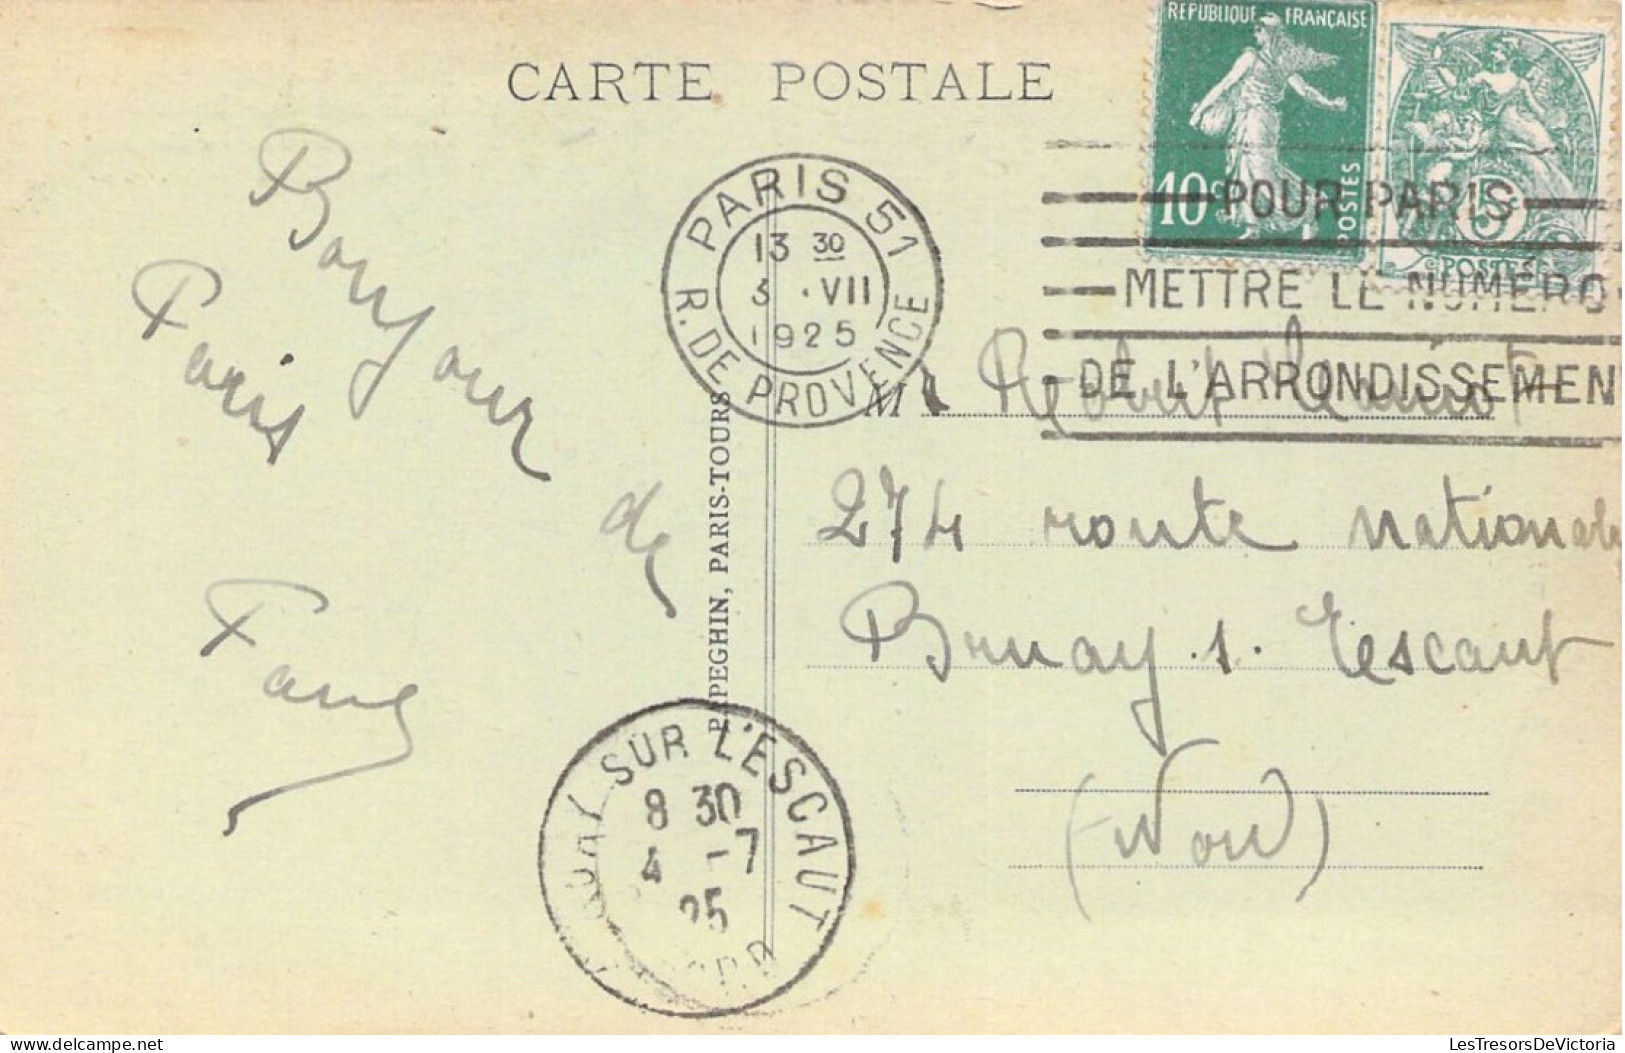 CARTE POSTALE
REPUBLIQUE FRANÇAISE
10c
POSTES
5c
POSTES
PARIS 51
13 30
3 . VII
1925
R. DE PROVENCE
POUR PARIS
METTRE LE NUMERO
DE L'ARRONDISSEMEN
Bonjour de
Paris
Fany
PAPEGHIN, PARIS-TOURS
Mr Robert
274 route nationale
Bruay . s . Escaut
(Nord)
SUR L'ESCAUT
8 30
4 -7
25
LesTresorsDeVictoria